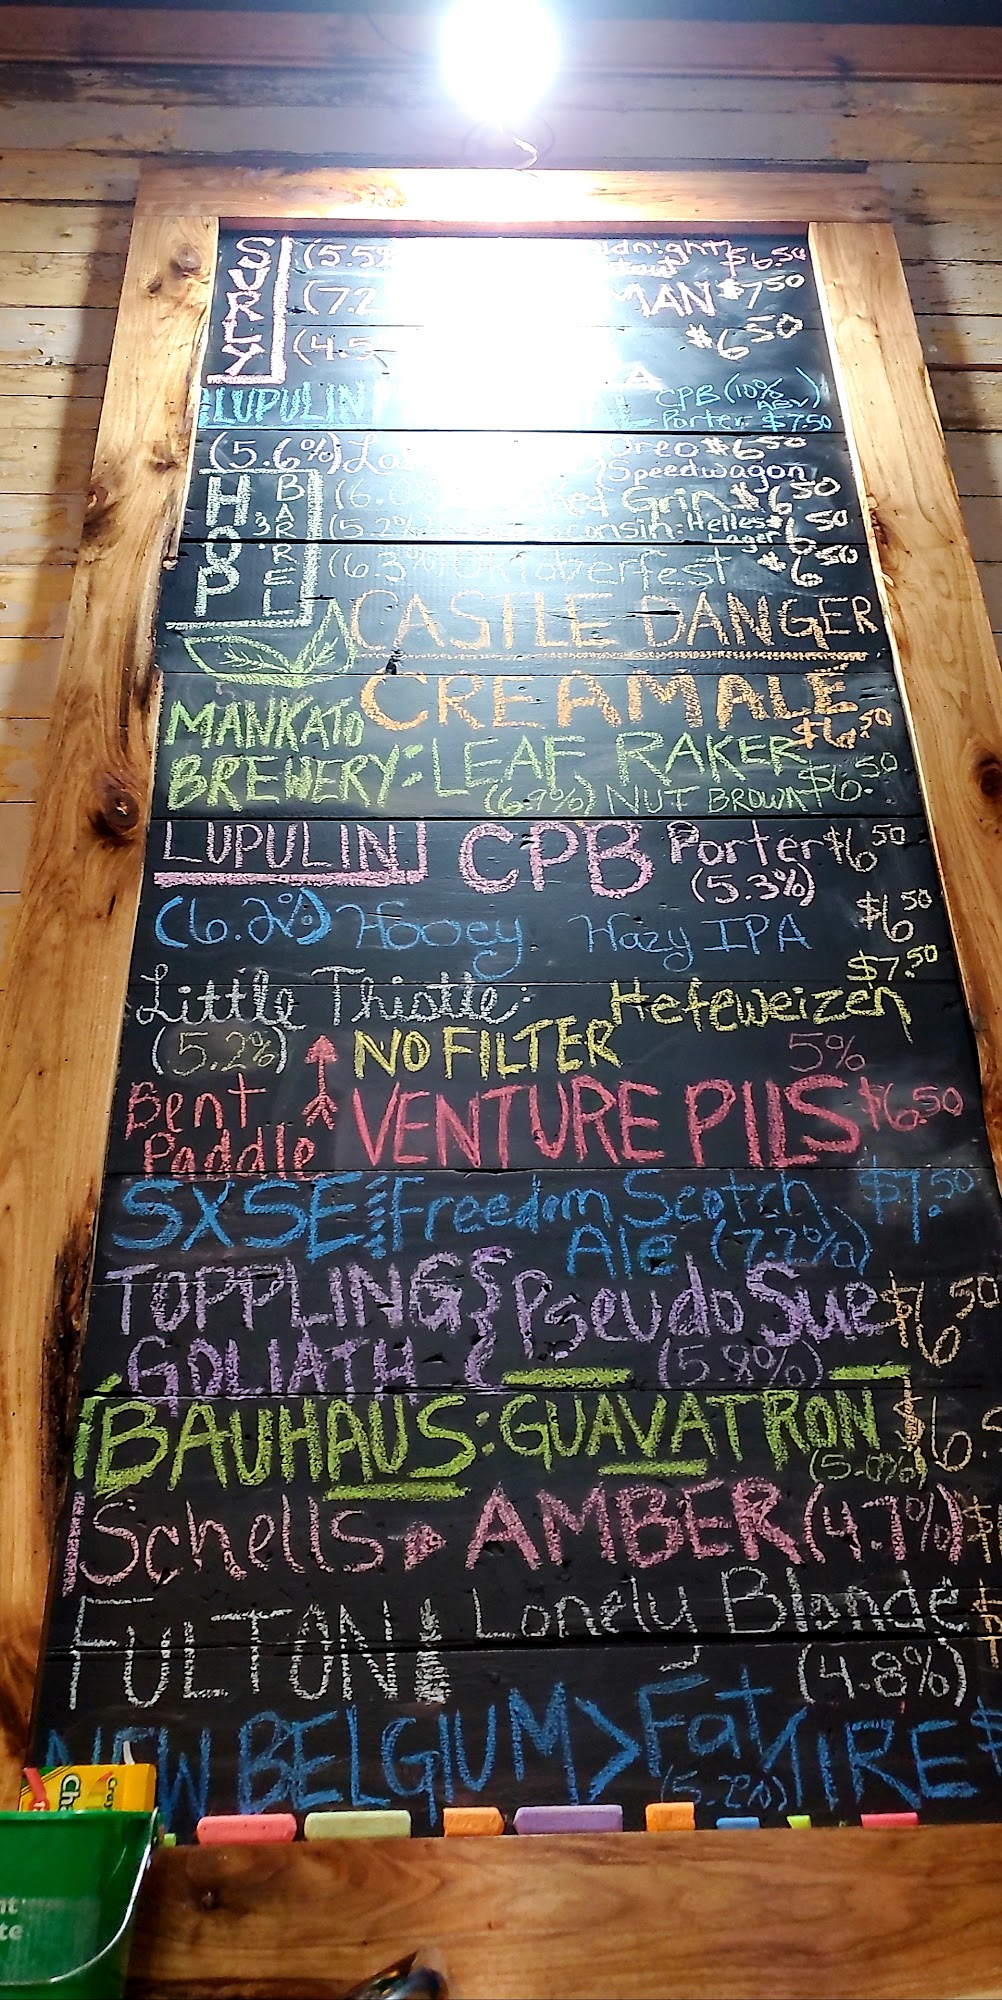 SURLY
(5.5% $6.50
(7.2 MAN $7.50
(4.5 $6.50
LUPULIN CPB (10% ABV)
Porter $7.50
(5.6%) Oreo $6.50
Speedwagon
HOP & BARREL
(6.0% Grin $6.50
(5.2%) consin: Helles Lager $6.50
(6.3%) Oktoberfest $6.50
CASTLE DANGER
CREAM ALE
$6.50
MANKATO
BREWERY: LEAF RAKER
(6.9%) NUT BROWN $6.50
LUPULIN CPB Porter $6.50
(5.3%)
(6.2%) Hooey Hazy IPA $6.50
$7.50
Little Thistle: Hefeweizen
(5.2%) NO FILTER 5%
Bent Paddle VENTURE PILS $6.50
SXSE Freedom Scotch $7.50
Ale (7.2%)
TOPPLING
GOLIATH Pseudo Sue $6.50
(5.8%)
BAUHAUS: GUAVATRON $6.5
(5.0%)
Schells AMBER (4.7%) $
FULTON Lonely Blonde
(4.8%)
NEW BELGIUM > Fat TIRE $
(5.2%)